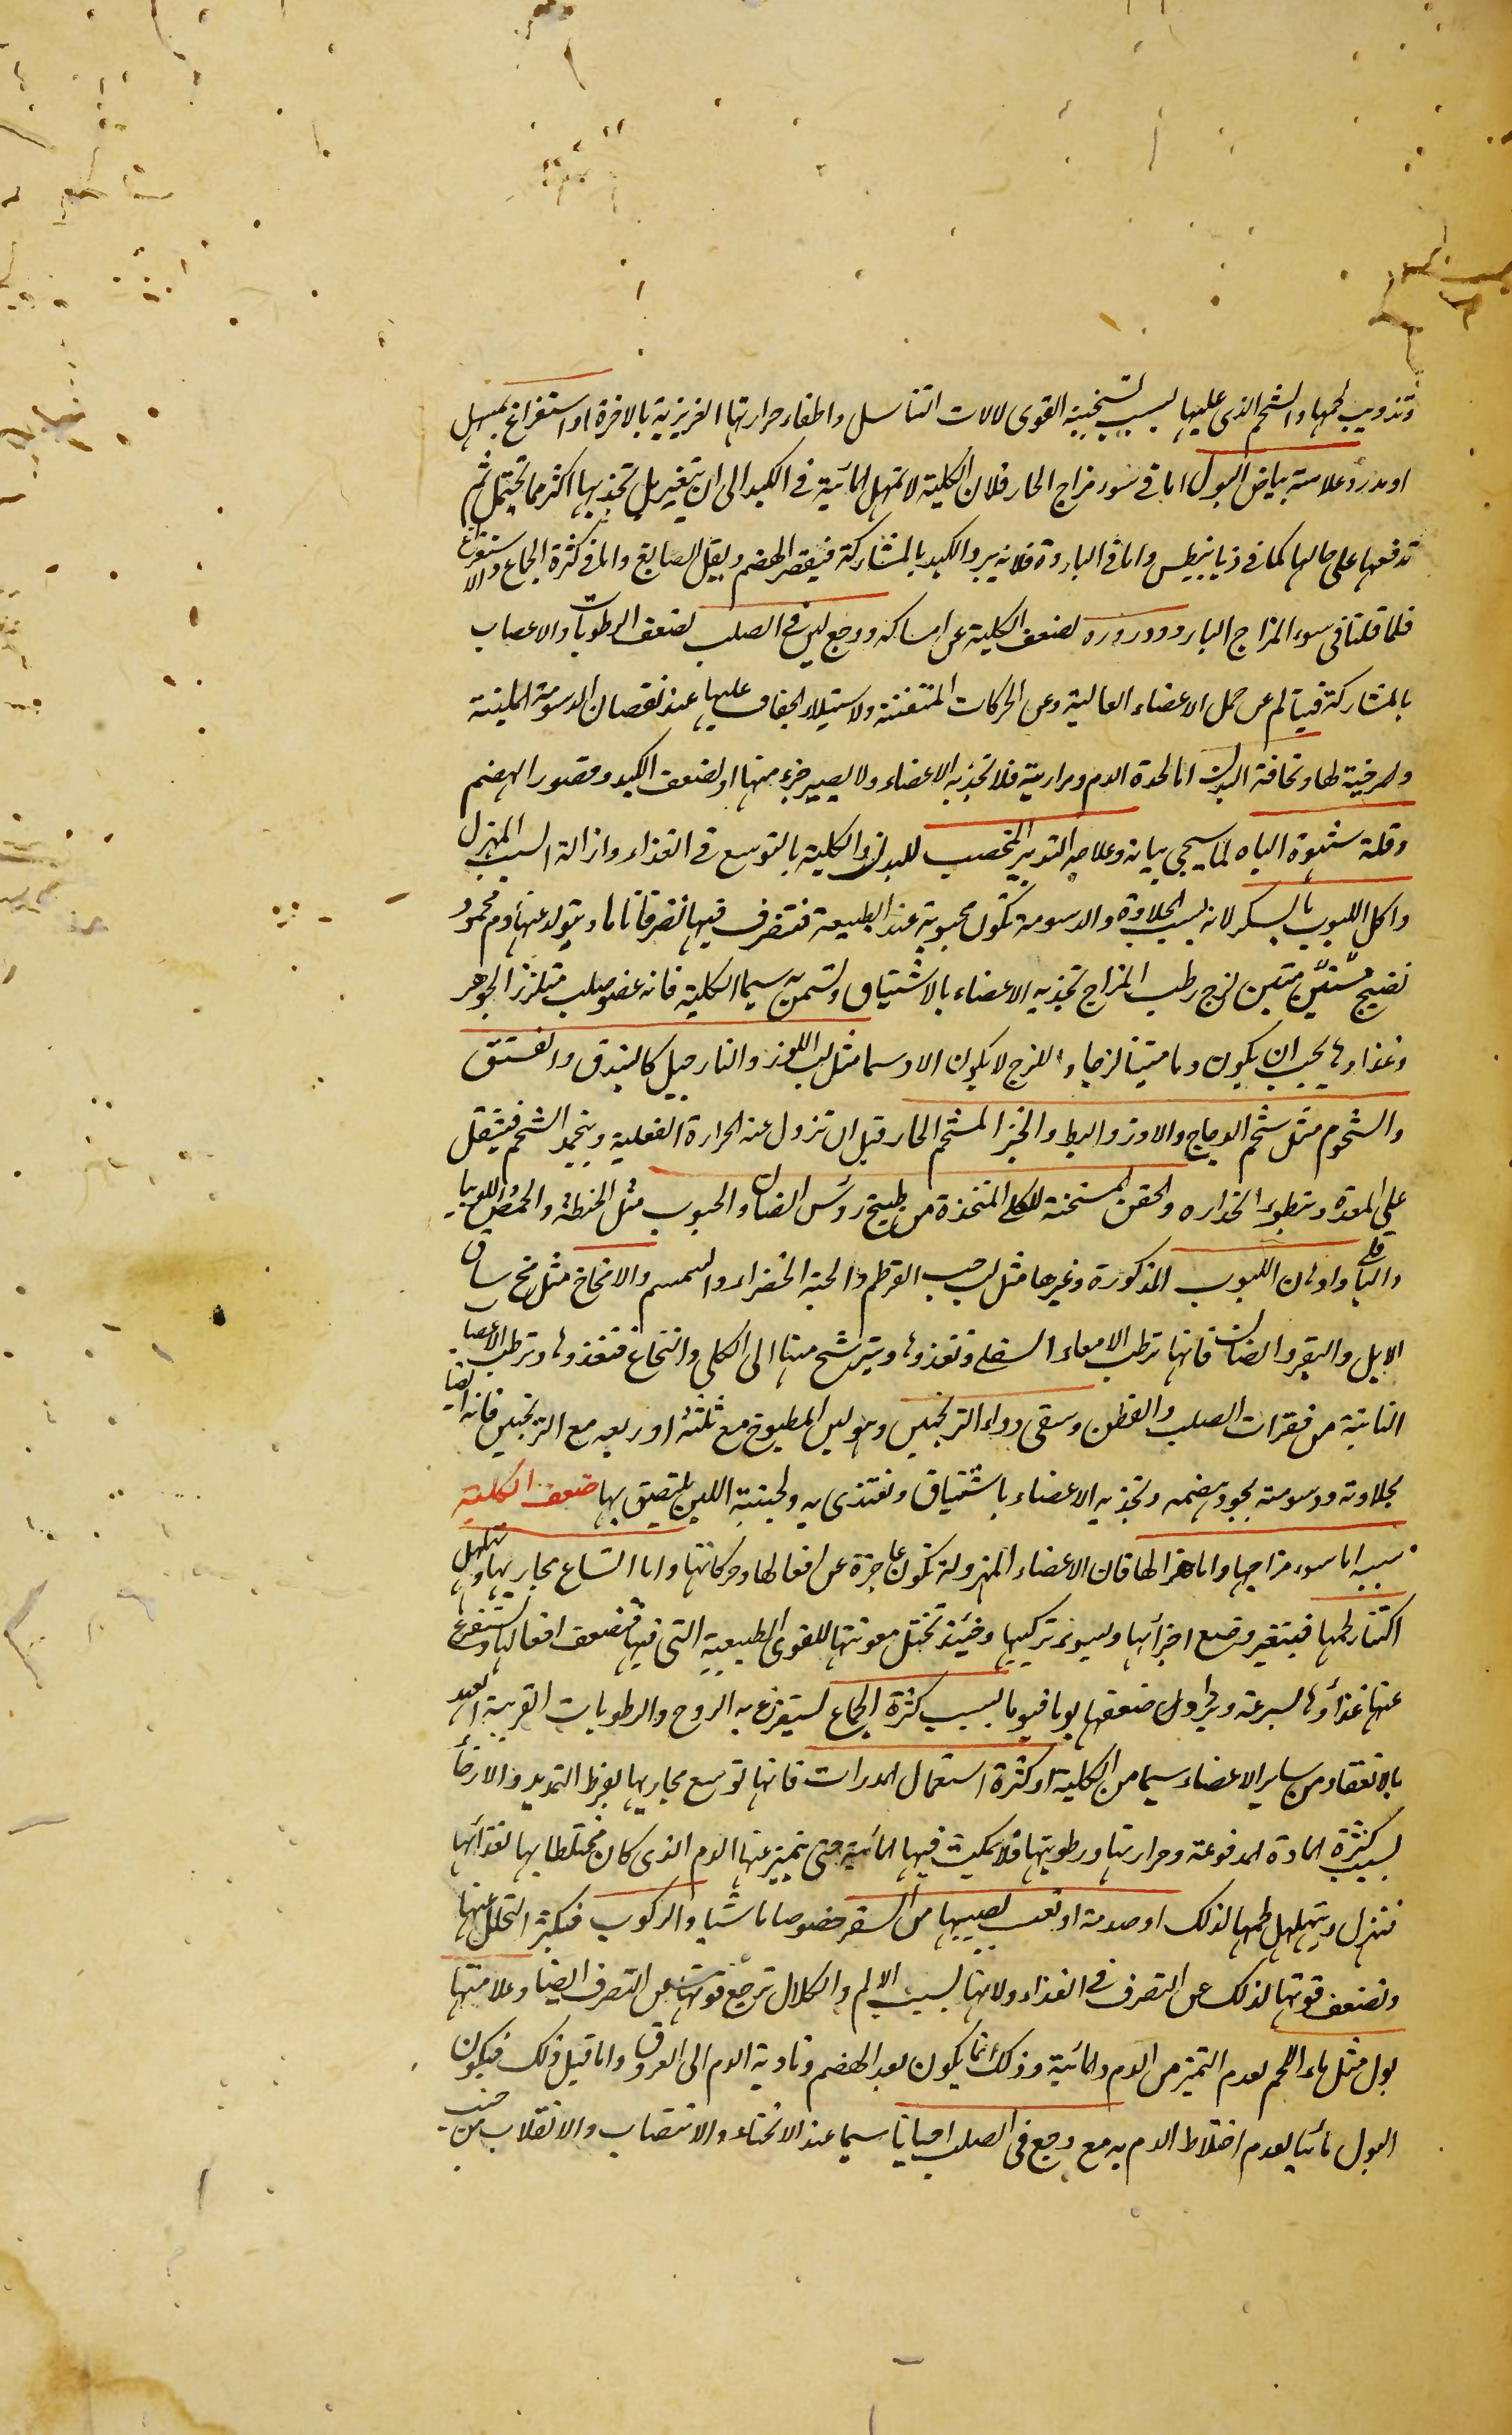 وتذويب لحمها والشحم الذى عليها بسبب تسخينه القوى لالات التناسل واطفاء حرارتها الغريزية بالاخرة او استفراغ بمسهل
او مدر وعلامته بياض البول اما فى سوء مزاج الحار فلان الكلية لا تمهل المائية فى الكبد الى ان يتغير بل تجذبها اكثر مما تحتمل ثم
تدفعها على حالها كما فى ذيابيطس واما فى البارد فلانه يبرد الكبد بالمشاركة فيقصر الهضم ويقل الصابغ واما فى كثرة الجماع والاستفراغ
فلما قلنا فى سوء المزاج البارد ودروره لضعف الكلية عن امساكه ووجع لين فى الصلب لضعف الرطوبات والاعصاب
بالمشاركة فيتالم عن حمل الاعضاء العالية وعن الحركات المتفننة ولاستيلاء الجفاف عليها عند نقصان الدسومة الملينة
والمرخية لها ونحافة البدن اما لحدة الدم ومراريته فلا تجذبه الاعضاء ولا يصير جزء منها او لضعف الكبد وقصور الهضم
وقلة شهوة الباه لما سيجى بيانه وعلاجه التدبير المخصب للبدن والكلية بالتوسع فى الغذاء وازالة السبب المهزل
واكل اللبوب بالسكر لانه بسبب الحلاوة والدسومة تكون محبوبة عند الطبيعة فتتصرف فيها تصرفا تاما ويتولد عنها دم محمود
نضيج متين لزج رطب المزاج تجذبه الاعضاء بالاشتياق وتسمن به سيما الكلية فانه عضو صلب متلزز الجوهر
وغذاؤها يجب ان يكون دما متينا لزجا واللزج لا يكون الا دسما مثل لب اللوز والنارجيل كالبندق والفستق
والشحوم مثل شحم الدجاج والاوز والبط والخبز المشحم الحار قبل ان تزول عنه الحرارة الفعلية وينجمد الشحم فيثقل
على المعدة ويبطؤ انحداره والحقن المسخنة للكلى المتخذة من طبيخ رؤس الضان والحبوب مثل الحنطة والحمص واللوبيا
والباقلى وادهان اللبوب المذكورة وغيرها مثل لب حب القرطم والحبة الخضراء والسمسم والامخاخ مثل مخ ساق
الابل والبقر والضان فانها ترطب الامعاء السفلى وتغذوها ويترشح منها الى الكلى والنخاع فتغذوها وترطب الاعصاب
النابتة من فقرات الصلب والقطن وسقى دواء الترنجبين وهو لبن المطبوخ مع ثلثه او ربعه مع الترنجبين فانه ايضا
بحلاوته ودسومته يجود هضمه وتجذبه الاعضاء باشتياق وتغتذى به ولجبنية اللبن يلتصق بها ضعف الكلية
سببه اما سوء مزاجها واما هزالها فان الاعضاء المهزولة تكون عاجزة عن افعالها وحركاتها واما اتساع مجاريها وتهلهل
اكتناز لحمها فيتغير وضع اجزائها ويسوء تركيبها وحينئذ تختل معونتها للقوى الطبيعية التى فيها فتضعف افعالها ويستفرغ
عنها غذاؤها بسرعة ويطول ضعفها يوما فيوما بسبب كثرة الجماع ليستفرغ به الروح والرطوبات القريبة العهد
بالانعقاد من ساير الاعضاء سيما من الكلية او كثرة استعمال المدرات فانها توسع مجاريها بفرط التمديد والارخاء
بسبب كثرة المادة المدفوعة وحرارتها ورطوبتها فلا تمكث فيها المائية حتى تتميز عنها الدم الذى كان مختلطا بها لغذائها
فتهزل ويتهلهل لحمها لذلك او صدمة او تعب يصيبها من السفر خصوصا ماشيا والركوب فيكثر التحلل عنها
وتضعف قوتها لذلك عن التصرف فى الغذاء ولانها بسبب الالم والكلال ترجع قوتها عن التصرف ايضا وعلامتها
بول مثل ماء اللحم لعدم التميز من الدم والمائية وذلك انما يكون بعد الهضم وتادية الدم الى العروق واما قبل ذلك فيكون
البول مائيا لعدم اختلاط الدم به مع وجع فى الصلب احيانا سيما عند الانحناء والانتصاب والانقلاب من جنب